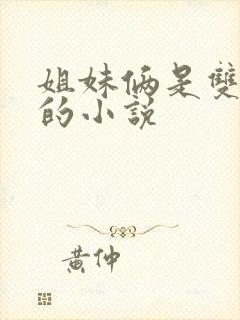 姐妹俩是雙
的小説
黄仲